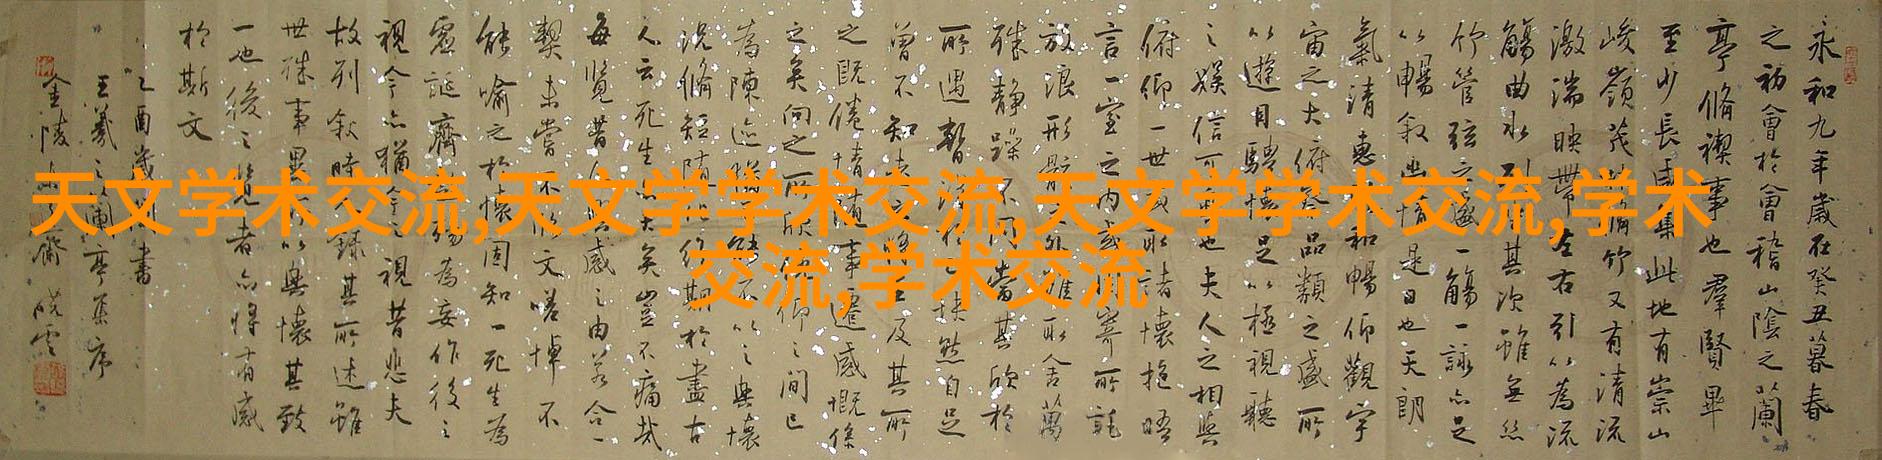 天文学术交流,天文学学术交流,天文学学术交流,学术
交流,学术交流
永和九年歲在癸丑暮春
之初會於會稽山陰之蘭
亭脩禊事也羣賢畢
至少長咸集此地有崇山
峻嶺茂林脩竹又有清流
激湍映帶左右引以為流
觴曲水列坐其次雖無絲
竹管弦之盛一觴一詠亦足
以暢敘幽情是日也天朗
氣清惠風和暢仰觀宇
宙之大俯察品類之盛所
以遊目騁懷足以極視聽
之娛信可樂也夫人之相與
俯仰一世或取諸懷抱晤
言一室之內或寄所託
放浪形骸之外雖取舍萬
殊靜躁不同當其欣於
所遇暫得於己怏然自足
曾不知老之將至及其所
之既倦情隨事遷感慨係
之矣向之所欣俛仰之間已
為陳迹猶不能不以之興懷
況脩短隨化終期於盡古
人云死生亦大矣豈不痛哉
每覽昔人興感之由若合一
契未嘗不臨文嗟悼不
能喻之於懷固知一死生為
虛誕齊彭殤為妄作後之
視今亦猶今之視昔悲夫
故列敘時人錄其所述雖
世殊事異所以興懷其致
一也後之覽者亦將有感
於斯文
乙酉歲書
王羲之蘭亭集序
金陵山齋